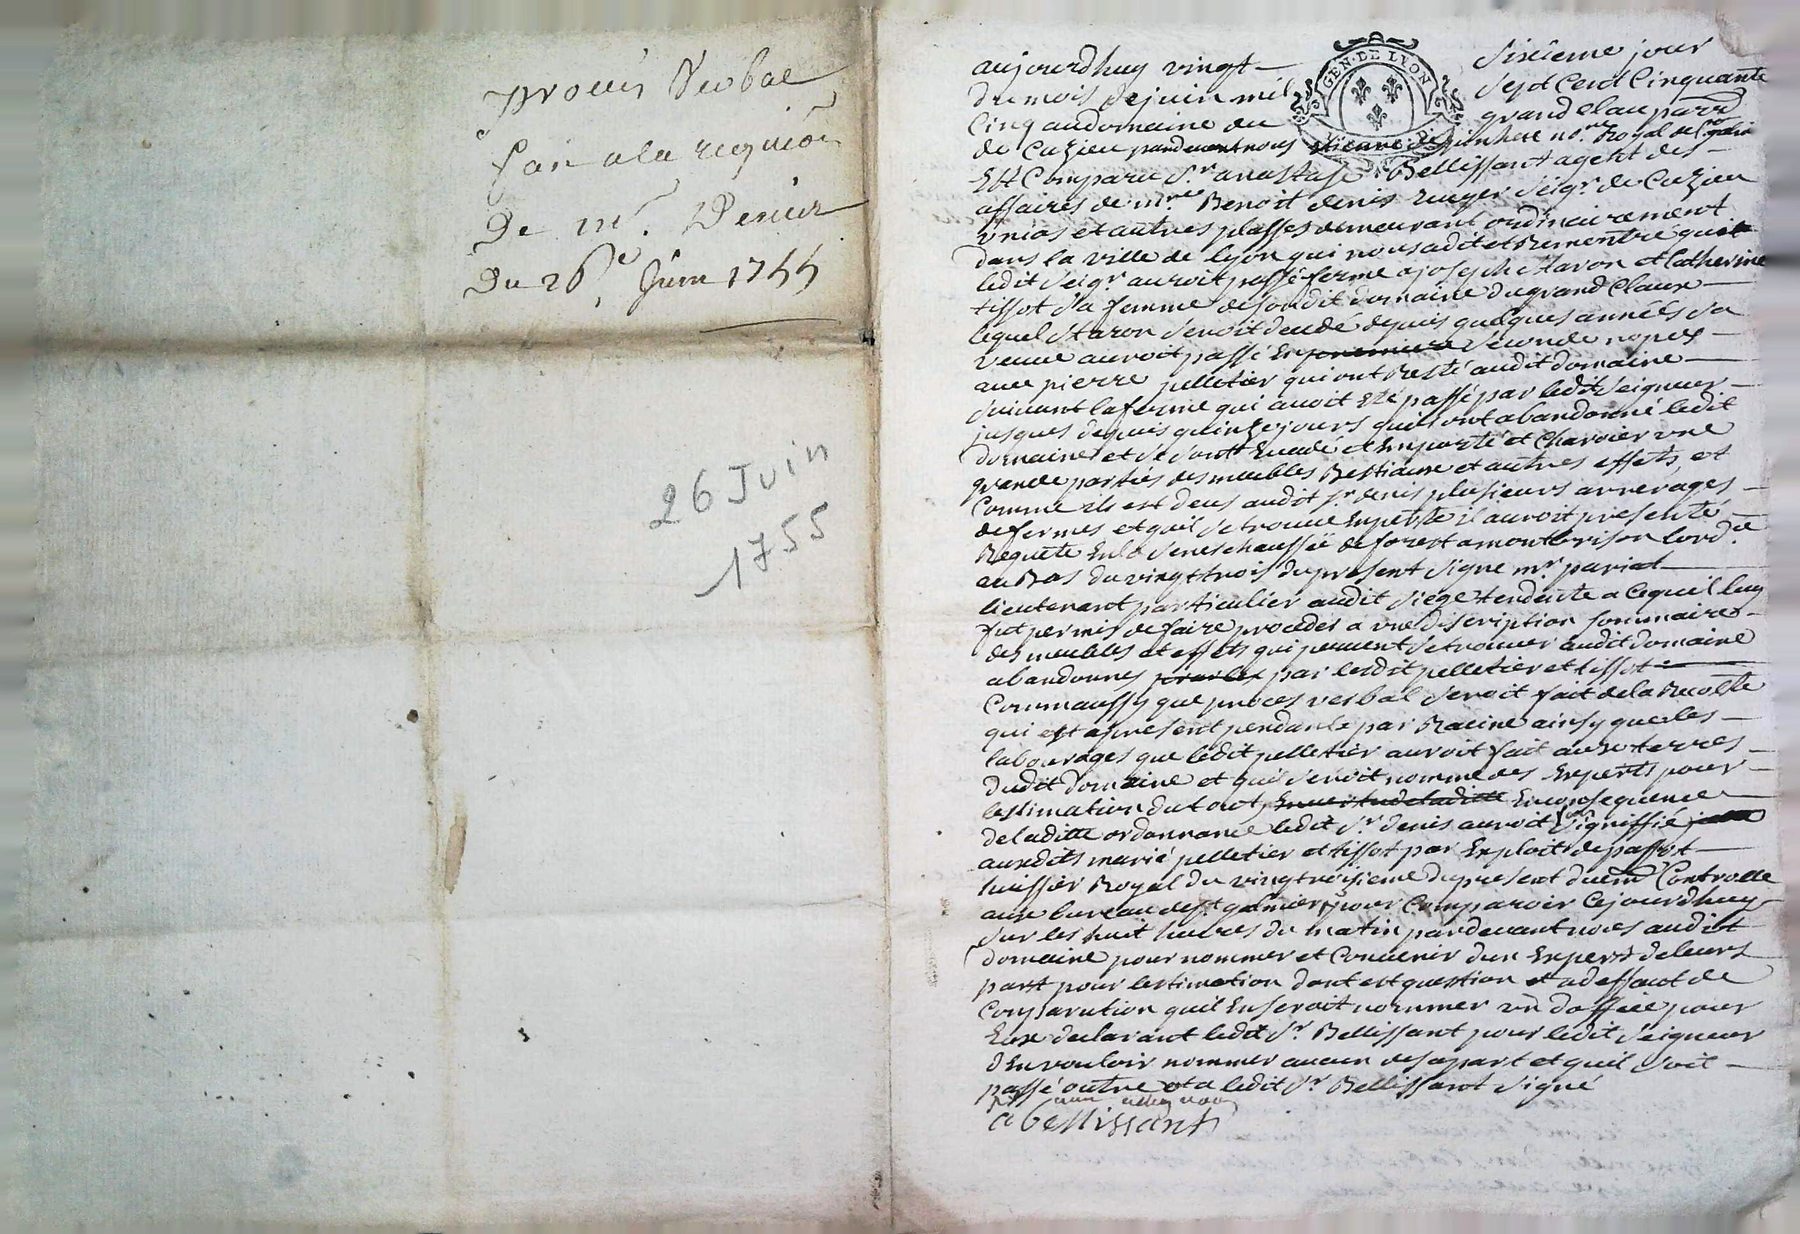 procés Verbal
fait a la requiõn
De mr. Denis
Du 26e Juin 1755
26 Juin
1755
GEN. DE LYON
aujourdhuy vingt sixiéme jour
du mois de juin mil sept Cent Cinquante
Cinq au domaine du grand Claux parr
de Cuzieu pardevant nous Etienne nore Royal
Est Comparu sr anastase Bellissant agent des
affaires de mre Benoit denis seigr de Cuzieu
unias et autres plasses demeurant ordinairement
dans la ville de lyon qui nous a dit et Remontré que
ledit seigr auroit passé ferme a joseph staron et Catherine
tissot sa femme de son dit domaine du grand Claux
lequel staron seroit decedé depuis quelques années sa
veuve auroit passé En premiere seconde nopces
avec pierre pelletier qui ont Resté audit domaine
suivant la ferme qui avoit Eté passé par ledit seigneur
jusques depuis quinze jours quils ont abandonné ledit
domaine et se sont Evadé et Emporté et Charoier une
grande parties des meubles Bestiaux et autres effets, et
Comme ils est deus audit sr denis plusieurs arrerages
de fermes et quil se trouve En perte il auroit presenté
Requete En la seneschaussée de forest a montbrison lord.ce
au Bas du vingt trois du present signé mr pariat
lieutenant particulier audit siége tendante a Cequil luy
fut permis de faire proceder a une discription sommaire
des meubles et effets qui peuvent se trouver audit domaine
abandonnes par les par lesdit pelletier et tissot
Comm aussy que proces verbal seroit fait de la Recolte
qui est apresent pendante par Racine ainsy que les
labourages que ledit pelletier auroit fait aux terres
dudit domaine et quil seroit nomme des Experts pour
lestimation du tout, En vertu de laditte En consequence
de laditte ordonnance ledit sr denis auroit signiffié
auxdits marié pelletier et tissot par Exploit de passot
huissier Royal du vingt troisieme du present duem Controlle
aux bureau de st galmier pour Comparoir Cejourdhuy
sur les huit heures du matin pardevant nous audit
domaine pour nommer et Convenir dun Expert de leurs
part pour lestimation dont est question et a deffaut de
Comparution quil En seroit nommer un doffice pour
Eux declarant ledit sr Bellissant pour ledit seigneur
dEn vouloir nommer aucun de sa part et quil soit
passé outre et a ledit sr Bellissant signé
a bellissant